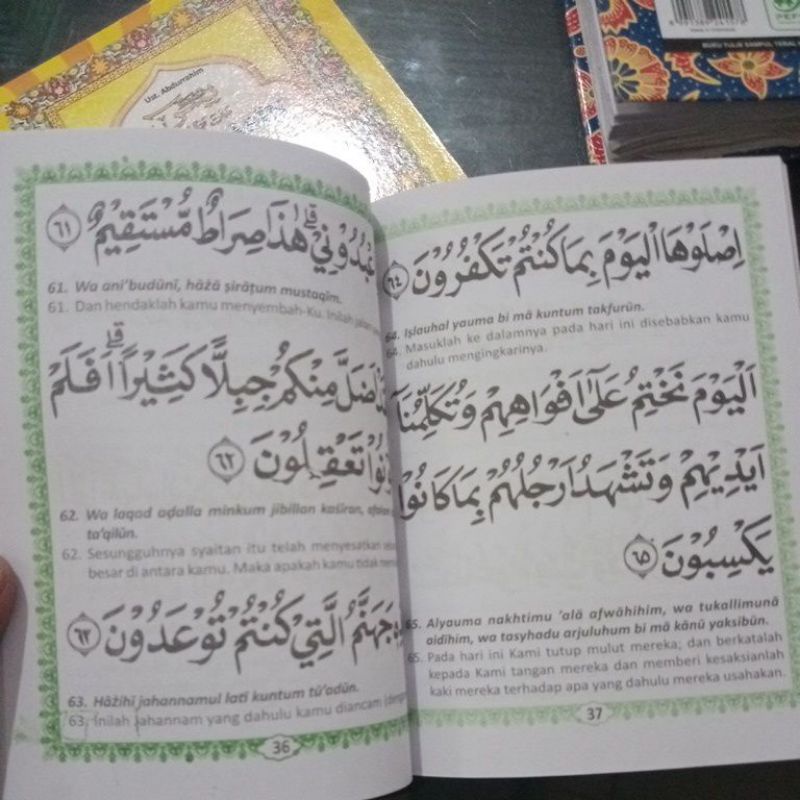 Ust. Abdurrahim
BUKU TULIS SAMPUL TEBAL
عْبُدُوْنِيْ ۗ هٰذَا صِرَاطٌ مُّسْتَقِيْمٌ ٦١
61. Wa ani'budūnī, hāżā ṣirāṭum mustaqīm.
61. Dan hendaklah kamu menyembah-Ku. Inilah jalan
اَضَلَّ مِنْكُمْ جِبِلًّا كَثِيْرًا ۗ اَفَلَمْ
تَعْقِلُوْنَ ٦٢
62. Wa laqad aḍalla minkum jibillan kaṡīran,
ta'qilūn.
62. Sesungguhnya syaitan itu telah menyesatkan
besar di antara kamu. Maka apakah kamu tidak
جَهَنَّمُ الَّتِيْ كُنْتُمْ تُوْعَدُوْنَ ٦٣
63. Hāżihī jahannamul latī kuntum tū'adūn.
63. Inilah jahannam yang dahulu kamu diancam
36
اِصْلَوْهَا الْيَوْمَ بِمَا كُنْتُمْ تَكْفُرُوْنَ ٦٤
64. Iṣlauhal yauma bi mā kuntum takfurūn.
64. Masuklah ke dalamnya pada hari ini disebabkan kamu
dahulu mengingkarinya.
اَلْيَوْمَ نَخْتِمُ عَلٰٓى اَفْوَاهِهِمْ وَتُكَلِّمُنَا
اَيْدِيْهِمْ وَتَشْهَدُ اَرْجُلُهُمْ بِمَا كَانُوْا
يَكْسِبُوْنَ ٦٥
65. Alyauma nakhtimu 'alā afwāhihim, wa tukallimunā
aidīhim, wa tasyhadu arjuluhum bi mā kānū yaksibūn.
65. Pada hari ini Kami tutup mulut mereka; dan berkatalah
kepada Kami tangan mereka dan memberi kesaksianlah
kaki mereka terhadap apa yang dahulu mereka usahakan.
37